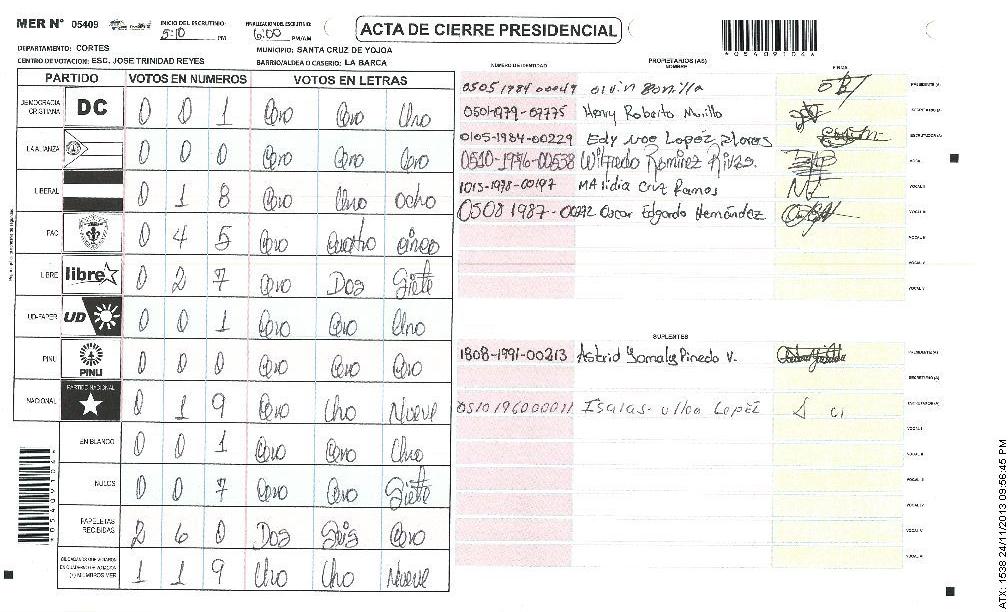 MER N° 05409
INICIO DEL ESCRUTINIO: 5:10 PM
FINALIZACION DEL ESCRUTINIO: 6:00 PM/AM
ACTA DE CIERRE PRESIDENCIAL
*054091046*
DEPARTAMENTO: CORTES
MUNICIPIO: SANTA CRUZ DE YOJOA
CENTRO DE VOTACION: ESC. JOSE TRINIDAD REYES
BARRIO/ALDEA O CASERIO: LA BARCA
PARTIDO VOTOS EN NUMEROS VOTOS EN LETRAS
DEMOCRACIA CRISTIANA DC 0 0 1 Cero Cero Uno
LA ALIANZA 0 0 0 Cero Cero Cero
LIBERAL 0 1 8 Cero Uno ocho
PAC 0 4 5 Cero Cuatro cinco
LIBRE libre 0 2 7 Cero Dos Siete
UD-FAPER UD 0 0 1 Cero Cero Uno
PINU PINU 0 0 0 Cero Cero Cero
NACIONAL PARTIDO NACIONAL 0 1 9 Cero Uno Nueve
EN BLANCO 0 0 1 Cero Cero Uno
NULOS 0 0 7 Cero Cero Siete
PAPELETAS RECIBIDAS 2 6 0 Dos Seis Cero
1 1 9 Uno Uno Nueve
NUMERO DE IDENTIDAD
PROPIETARIOS (AS)
NOMBRE
FIRMA
0505 1984 00049 olvin Bonilla PRESIDENTE (A)
0501-1979-07775 Henry Roberto Murillo SECRETARIO (A)
0105-1984-00229 Edy Noe Lopez Flores ESCRUTADOR (A)
0510-1996-00538 Wilfredo Ramirez Rivas. VOCAL I
1013-1978-00197 MA lidia Cruz Ramos VOCAL II
0508 1987-00292 Oscar Edgardo Hernández VOCAL III
VOCAL II
VOCAL V
VOCAL V
SUPLENTES
1808-1991-00213 Astrid Yamaly Pinedo V. PRESIDENTE (A)
SECRETARIO (A)
0510196000011 Isaias ulloa Lopez ESCRUTADOR (A)
VOCAL I
VOCAL II
ATX: 1538 24/11/2013 09:56:45 PM